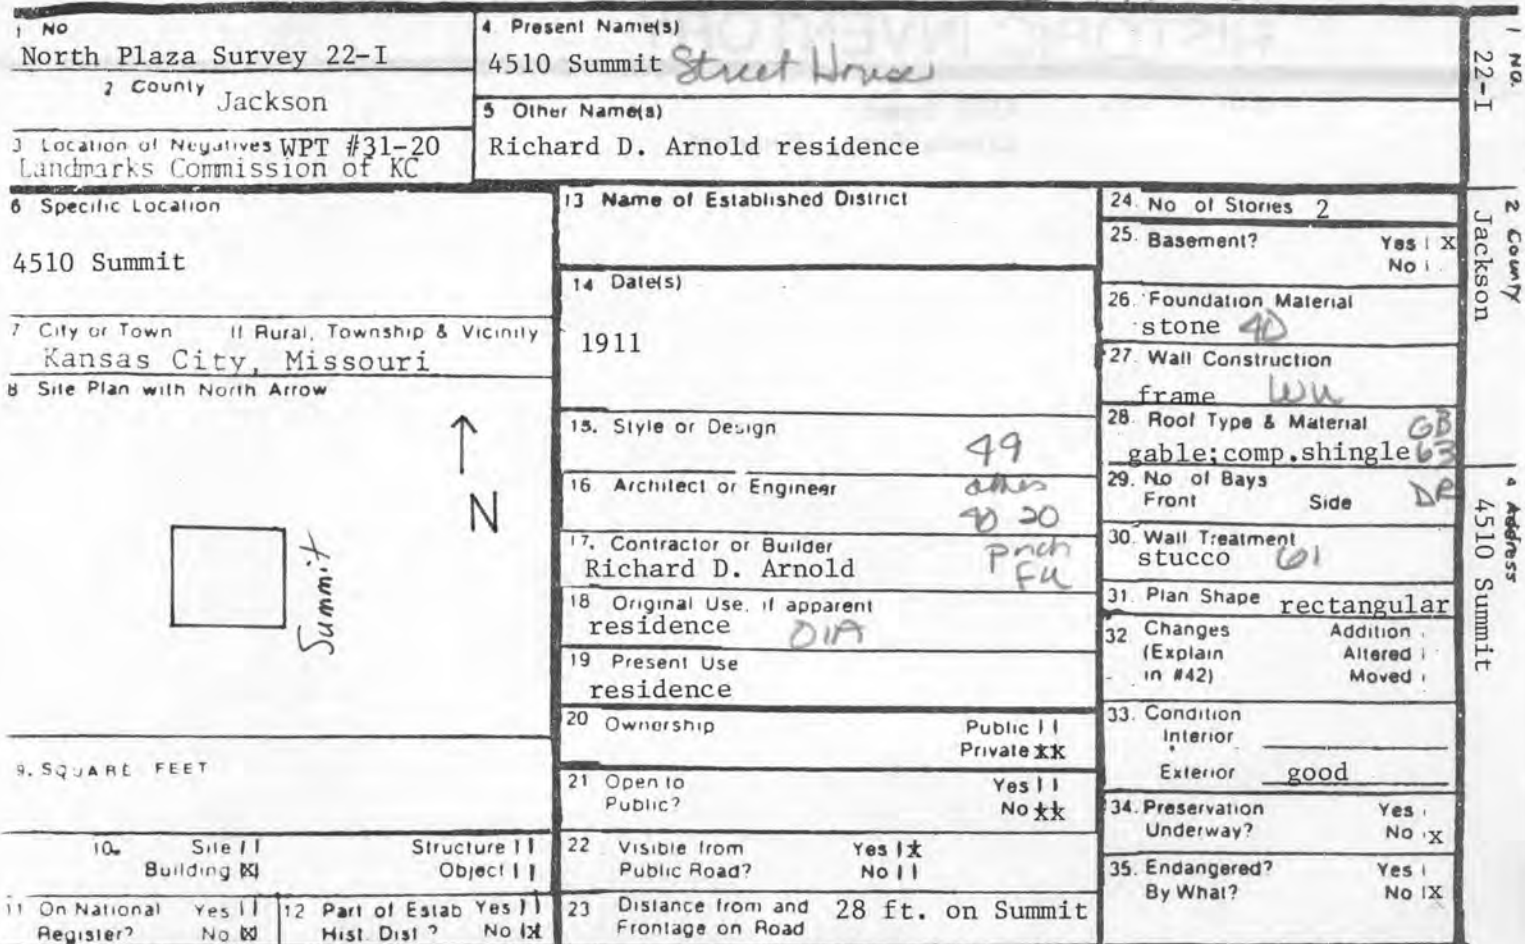 1 No
North Plaza Survey 22-I
2 County Jackson
3 Location of Negatives WPT #31-20
Landmarks Commission of KC
4. Present Name(s)
4510 Summit Street House
5 Other Name(s)
Richard D. Arnold residence
6 Specific Location
4510 Summit
7 City or Town If Rural, Township & Vicinity
Kansas City, Missouri
8 Site Plan with North Arrow
N
Summit
9. SQUARE FEET
10. Site Structure
Building X Object
11 On National Yes
Register? No X
12 Part of Estab Yes
Hist. Dist? No X
13 Name of Established District
14 Date(s)
1911
15. Style or Design
49
16 Architect or Engineer
40 20
17. Contractor or Builder
Richard D. Arnold
porch
18 Original Use, if apparent
residence 01A
19 Present Use
residence
20 Ownership Public
Private xx
21 Open to Yes
Public? No xx
22 Visible from Yes x
Public Road? No
23 Distance from and 28 ft. on Summit
Frontage on Road
24. No of Stories 2
25. Basement? Yes X
No
26. Foundation Material
stone 40
27. Wall Construction
frame
28. Roof Type & Material GB
gable;comp.shingle 63
29. No of Bays
Front Side
30. Wall Treatment
stucco 61
31. Plan Shape rectangular
32 Changes Addition
(Explain Altered
in #42) Moved
33. Condition
Interior
Exterior good
34. Preservation Yes
Underway? No X
35. Endangered? Yes
By What? No X
1 NO.
22-I
2 County
Jackson
4 Address
4510 Summit